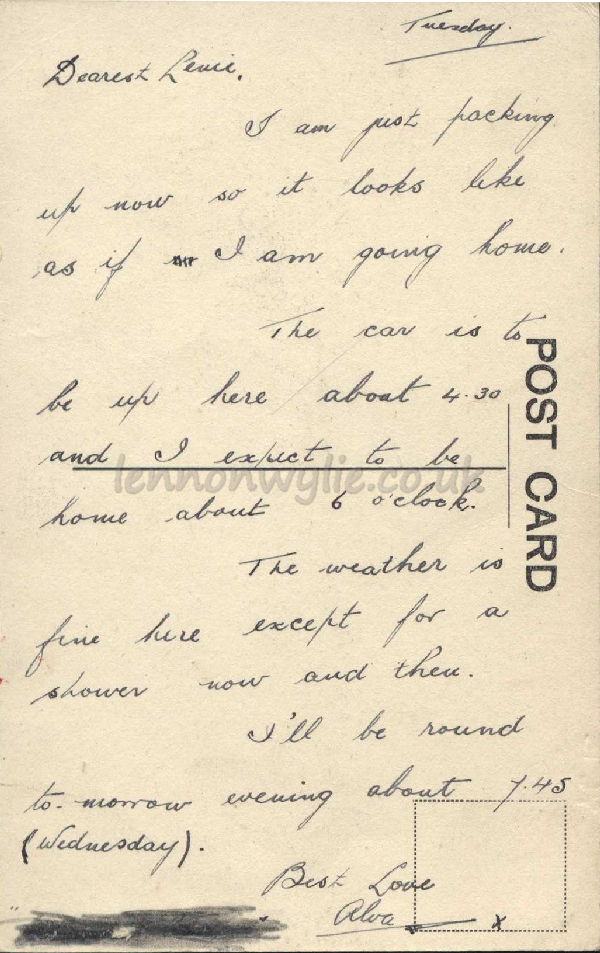 Tuesday.
Dearest Lenie,
I am just packing
up now so it looks like
as if I am going home.
The car is to
be up here about 4.30
and I expect to be
home about 6 o'clock.
The weather is
fine here except for a
shower now and then.
I'll be round
to-morrow evening about 7.45
(Wednesday).
Best Love
Alva
x
POST CARD
lennonwylie.co.uk